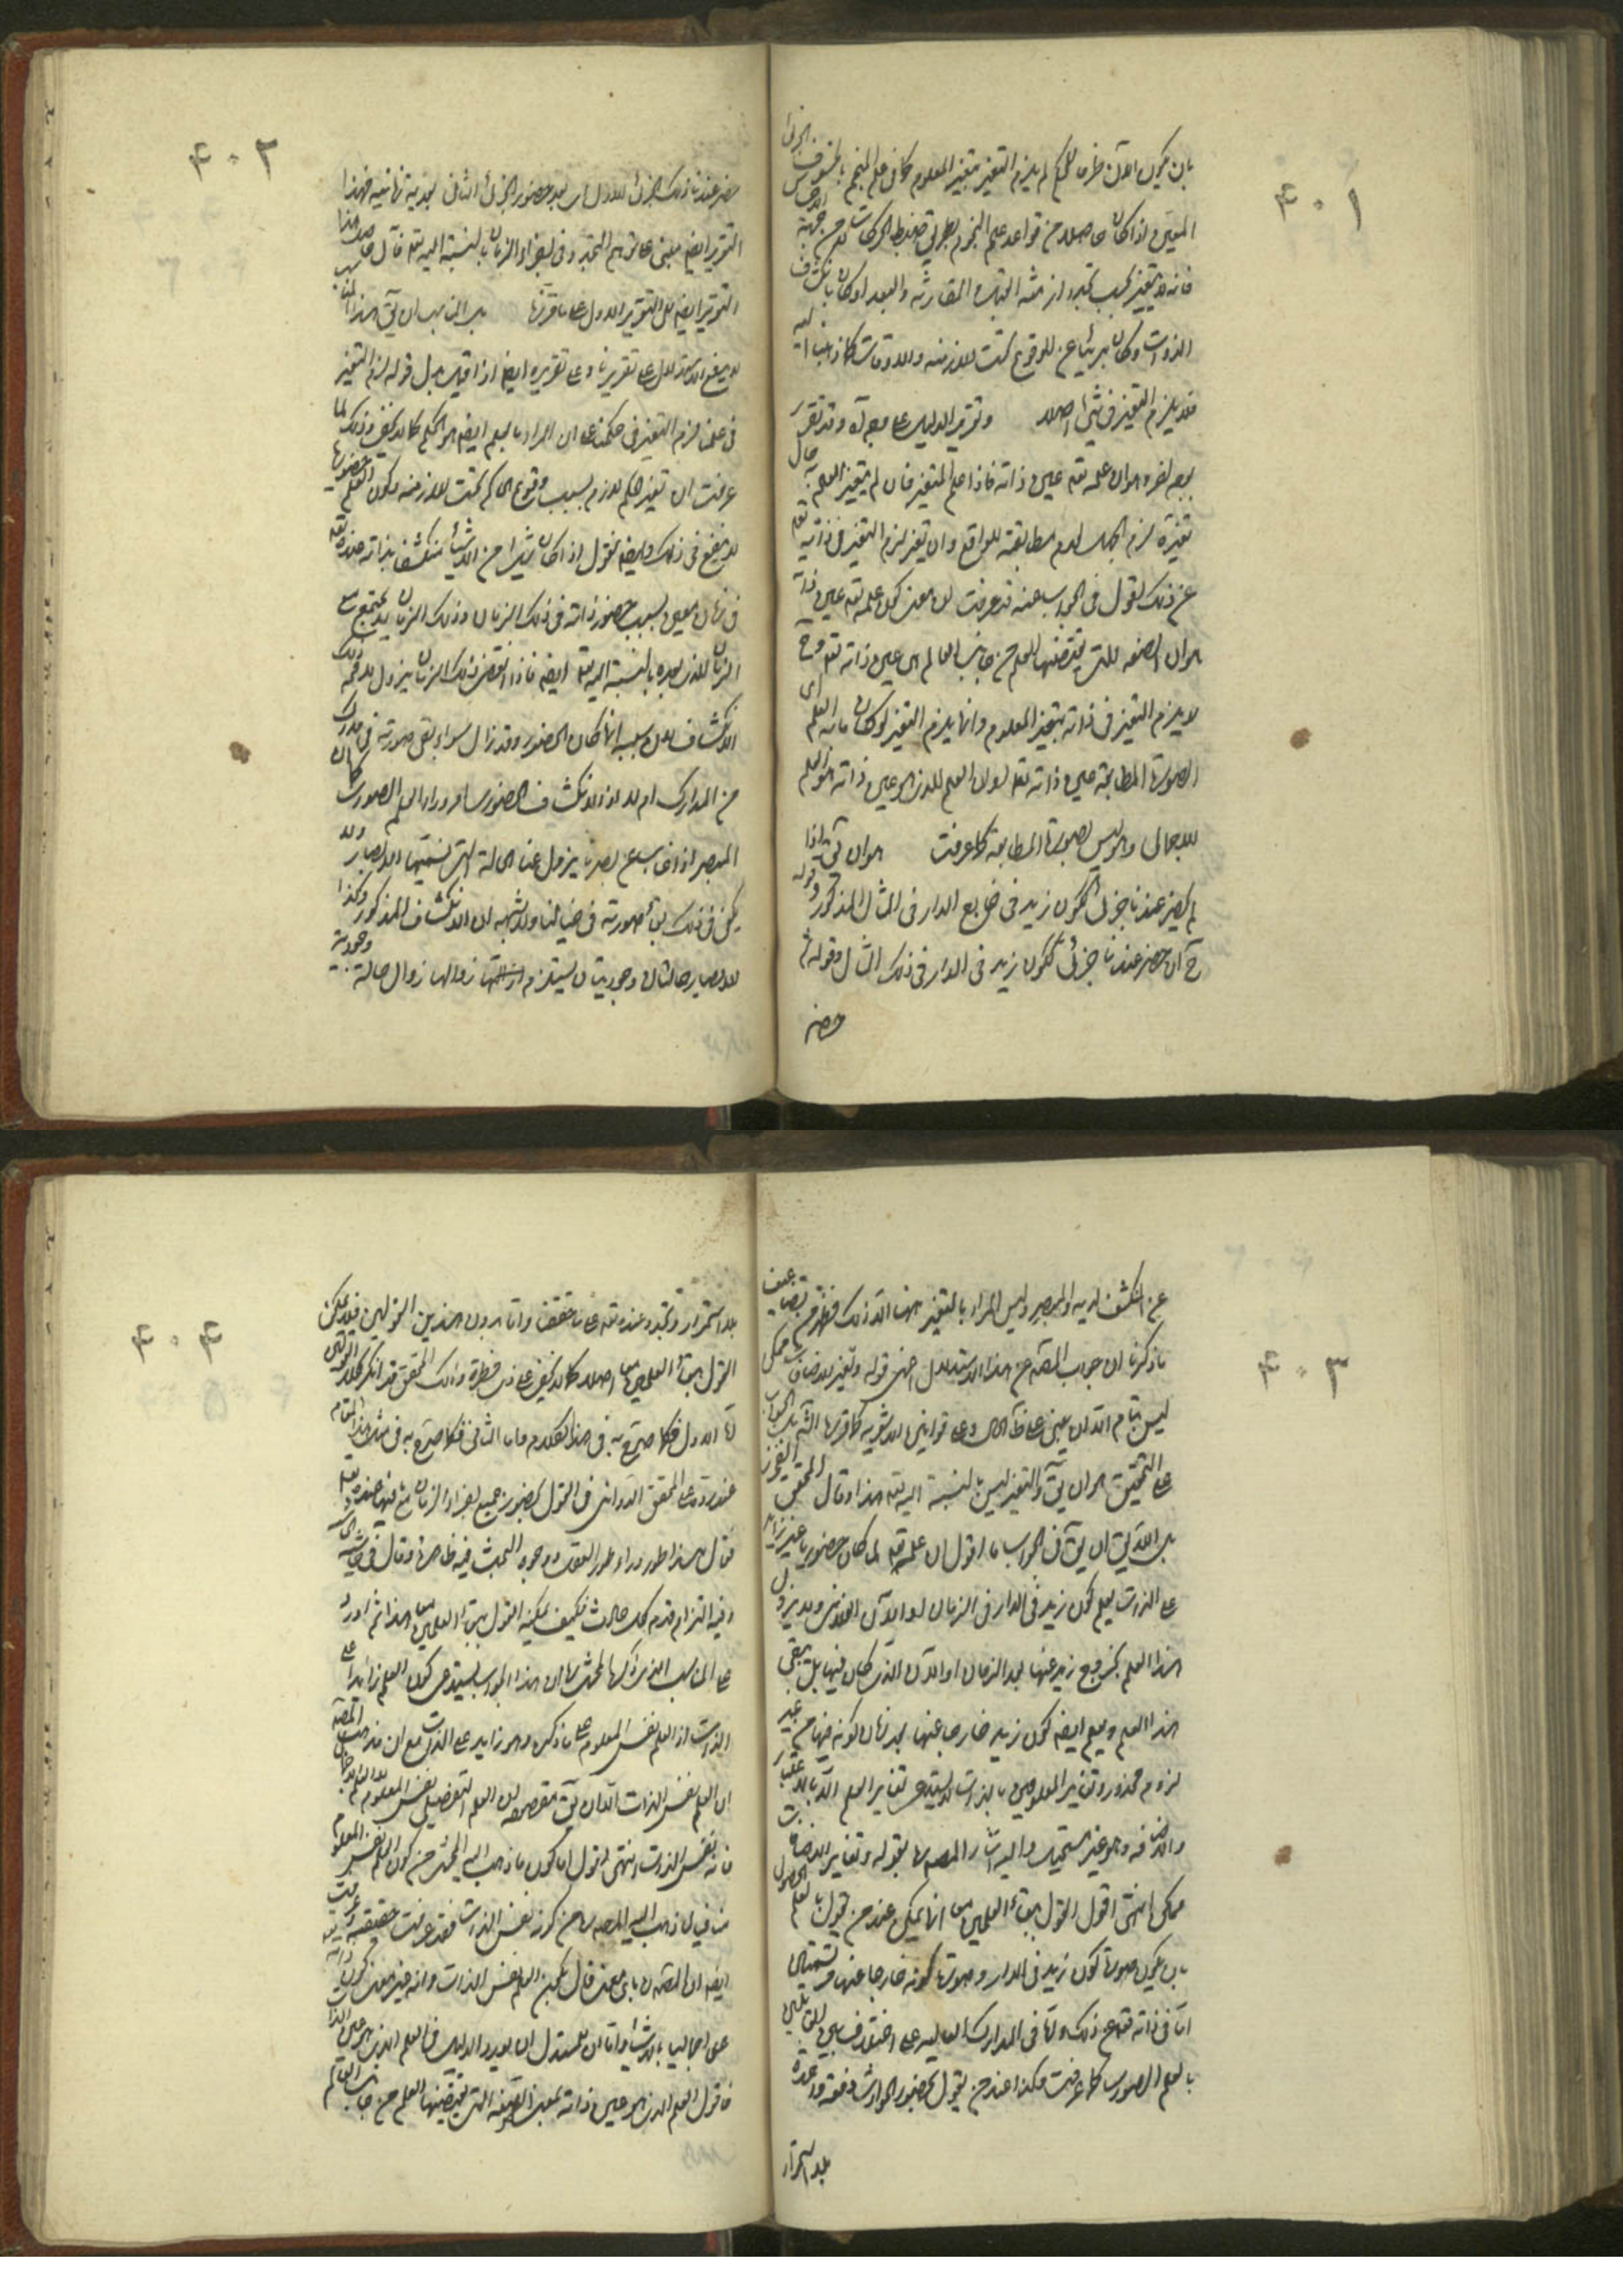 ۴۰۱
بان يكون الآن ظرفا للحكم لم يلزم التغير بتغير المعلوم كما فى علم المنجم بالخسوف الجزئى
المعين اذا كان حاصلا من قواعد علم النجوم بطريق ضبط الحركات لا من جهة الحس
فانه لا يتغير بحسب تجدد ازمنته المقارنة والبعد او كان بانكشاف
الذوات وكان بريئا عن الوقوع تحت الازمنة والاوقات كما ذهبنا اليه
فلا يلزم التغير فى شئ اصلا وتقرير الدليل على وجه آخر وقد تقرر
بوجه آخر وهو ان علمه تعه عين ذاته فاذا علم المتغير فان لم يتغير العلم حال
تغيره لزم الجهل لعدم مطابقته للواقع وان تغير لزم التغير فى ذاته تعه
عن ذلك نقول فى الجواب عنه قد عرفت ان معنى كون علمه تعه عين ذاته
هو ان الصفة التى يقتضيها العلم من جانب العالم هى عين ذاته تعه وح
لا يلزم التغير فى ذاته بتغير المعلوم وانما يلزم التغير لو كان ما به العلم اى
الصورة المطابقة عين ذاته تعه لو ان العلم الذى هو عين ذاته هو العلم
الاجمالى وهو ليس بصورة مطابقة كما عرفت هو ان يق اذا
لم يحضر عندنا جزئى ككون زيد فى خارج الدار فى المثال المذكور وقوله
ثم ان حضر عندنا جزئى ككون زيد فى الدار فى ذلك المثال وقوله ثم
حضر
۴۰۲
حضر عندنا ذلك الجزئى الاول اى بعد حضور الجزئى الثانى بعدية زمانية فهذا
التقرير ايضا مبنى على توهم التجدد فى اجزاء الزمان بالنسبة اليه تعه فآل حاصل هذا
التقرير ايضا الى التقرير الاول على ما قررنا بل المناسب ان يق هذا الجواب
لا يدفع الاستدلال على تقريرنا وعلى تقريره ايضا اذا قيل بدل قوله لزم التغير
فى علمنا لزم التغير فى حكمنا على ان المراد بالعلم ايضا هو الحكم كما لا يخفى وذلك لما
عرفت ان تغير الحكم لازم بسبب وقوع الحاكم تحت الازمنة وكون العلم حضوريا
لا ينفع فى ذلك وايضا نقول اذا كان شيئا من الاشياء منكشفا بذاته عنده تعه
فى زمان معين بسبب حضور ذاته فى ذلك الزمان وذلك الزمان لا يجتمع مع
الزمان الذى بعده بالنسبة اليه تعه ايضا فاذا انقضى ذلك الزمان يزول لا محالة ذلك
الانكشاف لان سببه انما كان الحضور وقد زال سواء بقى صورته فى مدرك
من المدارك ام لا اذ الانكشاف الحضورى امر وراء العلم الصورى كما ان
المبصر اذا غاب عن بصرنا يزول عنا الحالة التى نسميها الابصار ولا
يكفى فى ذلك بقاء صورته فى خيالنا ولا شبهة ان الانكشاف المذكور وكذا
الابصار حالتان وجوديتان يستلزم زوالهما زوال حالة وجودية
۴۰۳
عن المنكشف لديه والمبصر وليس المراد بالتغير ههنا الا ذلك فظهر من تضاعيف
ما ذكرنا ان جواب المصه عن هذا الاستدلال اعنى قوله وتغير الاضافات ممكن
ليس بتام الا ان يبنى على ظاهر الحال وعلى قوانين الاشعرية كما قرره الشه بل الجواب
على التحقيق هو ان يق والتغير ليس بالنسبة اليه تعه هذا وقال المحقق الفخرى
بل اللايق ان يق فى الجواب ما اقول ان علمه تعه لما كان حضوريا غير زايد
على الذات يعلم كون زيد فى الدار فى الزمان او الآن الفلانى ولا يزول
هذا العلم بخروج زيد عنها بعد الزمان او الآن الذى كان فيها بل يبقى
هذا العلم ويعلم ايضا كون زيد خارجا عنها بعد زمان كونه فيها من غير
لزوم محذور وتغير المعلومين بالذات لا يستدعى تغاير العلم الا بالاعتبار
والاضافة وهو غير مستحيل واليه اشار المصه ره بقوله وتغاير الاضافات
ممكن انتهى اقول القول ببقاء العلمين معا انما يمكن عند من يقول بالعلم الحصولى
بان يكون صورة كون زيد فى الدار وصورة كونه خارجا عنها مرتسمتين
اما فى ذاته تعه عن ذلك واما فى المدارك العالية على اختلاف بين القائلين
بالعلم الصورى كما عرفت وهكذا عند من يقول بحضور الحوادث دفعة واحدة
بلا استمرار
۴۰۴
بلا استمرار وتجدد عنده تعه على ما حققنا واما بدون هذين القولين فلا يمكن
القول ببقاء العلمين معا اصلا كما لا يخفى على ذى فطرة وذلك المحقق قد انكر كلا القولين
اما الاول فكما صرح به فى هذا الكلام واما الثانى فكما صرح به فى مثل هذا المقام
عند رده على المحقق الدوانى فى القول بحضور جميع اجزاء الزمان مع ما فيها عنده تعه
فقال هذا طور وراء طور العقل ووجوه البحث فيه ظاهرة وقال فى حاشية
وفيه التزام قدم كل حادث فكيف يمكنه القول ببقاء العلمين معا هذا ثم اورد
على المناسب الذى ذكره المحشى بان هذا الجواب يستدعى كون العلم زائدا على
الذات اذ العلم نفس المعلوم على ما ذكره وهو زايد على الذات مع ان مذهب المصه
ان العلم نفس الذات الا ان يق مقصوده ان العلم التفصيلى نفس المعلوم
فانه نفس الذات انتهى اقول اما كون ما ذهب اليه المحشى من كون العلم نفس المعلوم
منافيا لما ذهب اليه المصه ره من كونه نفس الذات فقد عرفت حقيقته
ايضا ان المصه باى معنى قال بكون العلم نفس الذات وانه غير معنى كون
علما اجماليا بالاشياء واما ان للمستدل ان يورد الدليل فى العلم الذى هو عين الذات
فاقول العلم الذى هو عين ذاته بمعنى الصفة التى يقتضيها العلم من جانب العالم